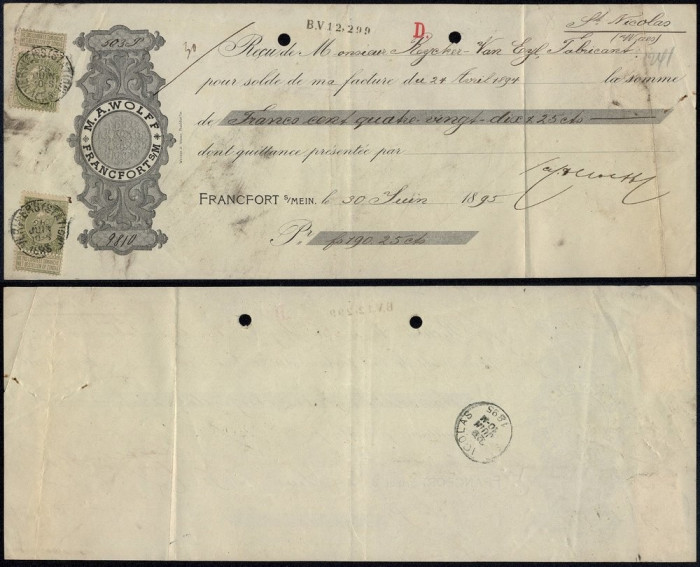 B.V 12.299
D.
St. Nicolas
(Waes)
503 P
30
Reçu de Monsieur Reycker-Van Eyl, Fabricant
pour solde de ma facture du 24 Avril 1894 la somme
de Francs cent quatre-vingt-dix & 25 cts
dont quittance présentée par
M. A. WOLFF
FRANCFORT S/M
FRANCFORT S/MEIN, le 30 Juin 1895
9810
Pr f 190.25 cts
B.V 12.299
ICOLAS
JUIN
1895